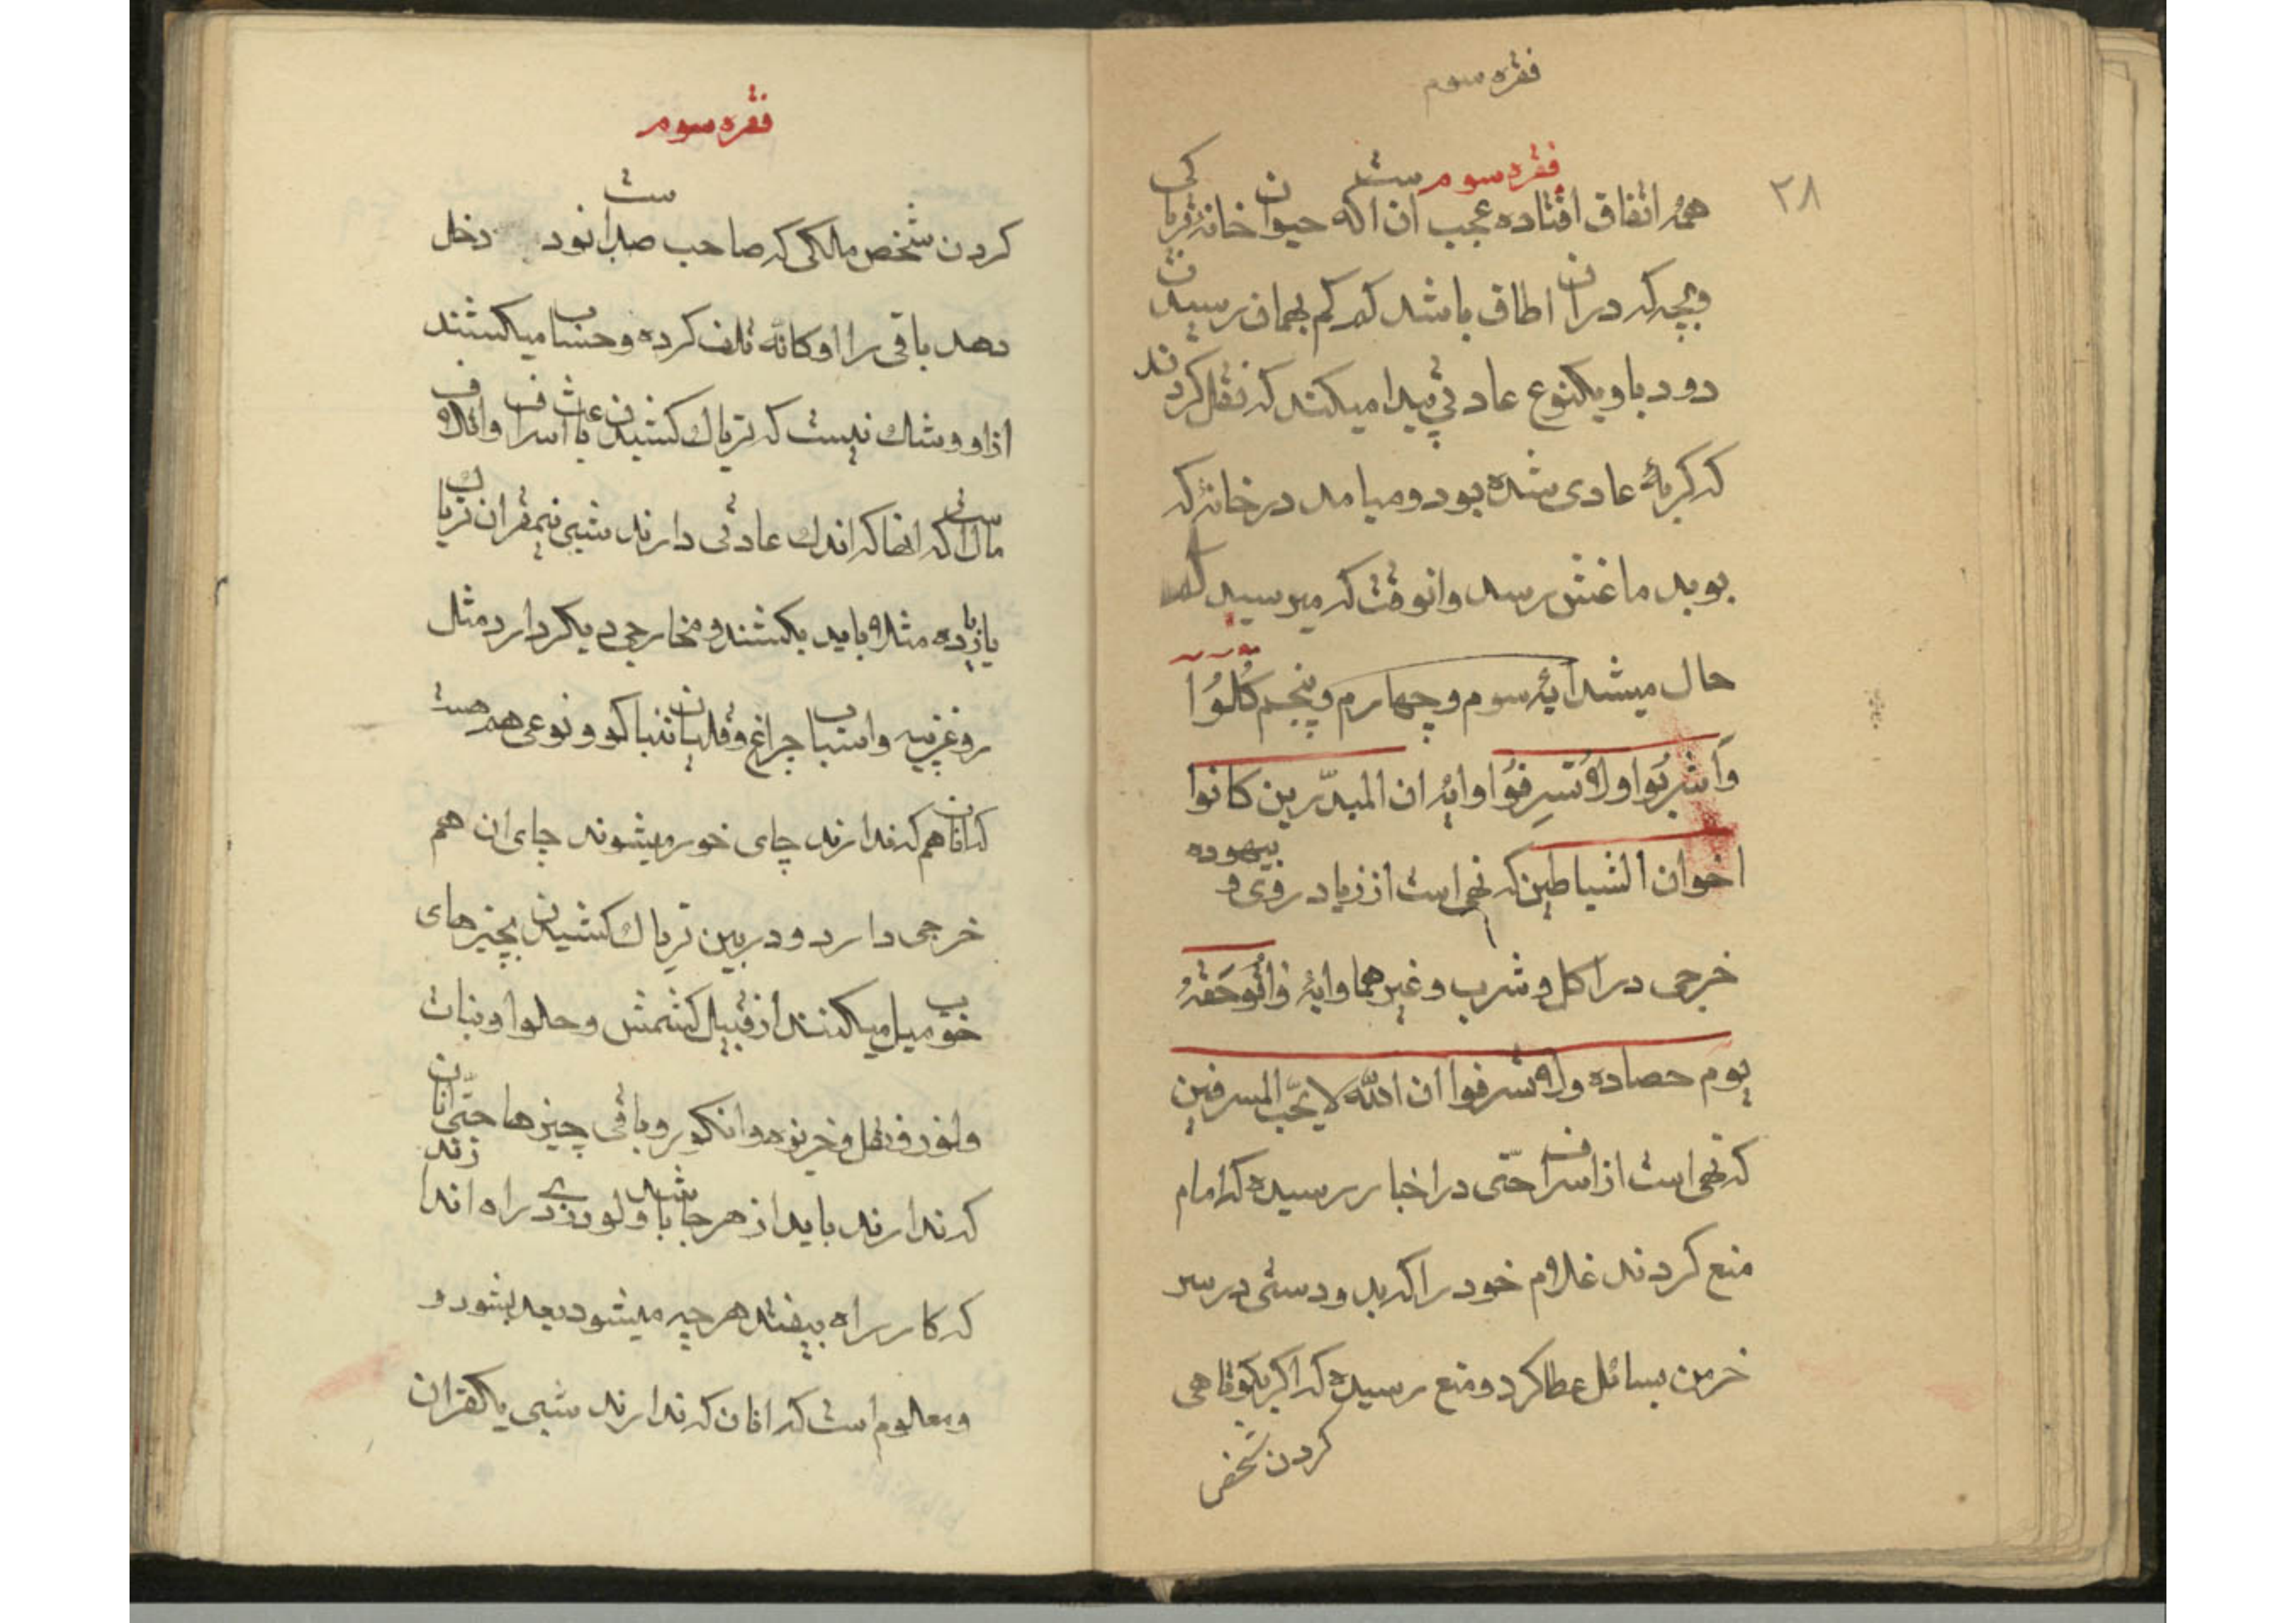 فقره سوم
فقره سوم
۳۸
همه اتفاق افتاده عجب ان است که حیوان خانه تریاکی
وبچه که دران اطاق باشد که کم کم بهمان رسیدن
دود باو یکنوع عادتی پیدا میکند که نقل کردند
که گربهٔ عادی شده بود و میامد در خانه که
بوید ماغش رسد وانوقت که میرسید
حال میشد ایهٔ سوم و چهارم و پنجم کُلُوُا
وَاَشرِبُوا ولا تُسرِفُوا وایه ان المبذّرین کانوا
اخوان الشیاطین که نهی است از زیاد روی و بیهوده
خرجی در اکل و شرب و غیرهما وایه واتُوحَقهُ
یوم حصاده ولا تسرفوا ان الله لا یحّب المسرفین
که نهی است از اسراف حتّی در اخبار رسیده که امام
منع کردند غلام خود را که بد و دستی در سر
خرمن بسائل عطا کرد و منع رسیده که اگر بکوتاهی
کردن شخص
فقره سوم
کردن شخص مالکی که صاحب صد است نود دخل
بعد باقی را اوکانه تلف کرده و حساب میکشند
از او و شک نیست که تریاک کشیدن باعث اسراف واتلاف
مال است که انها که اندک عادتی دارند شبی نیمقران تریاک
یا زیاده مثلا باید بکشند و مخارجی دیگر دارد مثل
روغن واسباب چراغ وقلیان تنباکو و نوعی هم هست
که انان هم که ندارند چای خور میشوند چای ان هم
خرجی دارد و در بین تریاک کشیدن بچیزهای
خوب میل میکنند از قبیل کشمش و حلوا و نبات
وخربوزه وانگور و باقی چیزها حتّی انان
که ندارند باید از هر جا باشد ولو دزدی راه اندازند
که کار راه بیفتد هر چه میشود بعد بشود و
ومعلوم است که انان که ندارند شبی یکقران